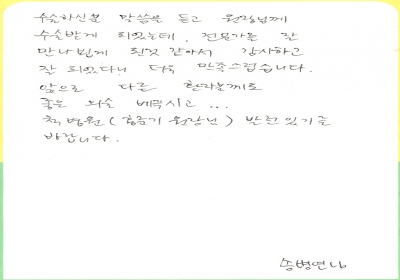 수술하신분 말씀을 듣고 원장님께
수술받게 되었는데, 전문가를 잘
만나뵌게 된것 같아서 감사하고
잘 되었다니 더욱 만족스럽습니다.
앞으로 다른 환자분께도
좋은 의술 베푸시고 ...
척병원( 원장님) 발전 있기를
바랍니다.